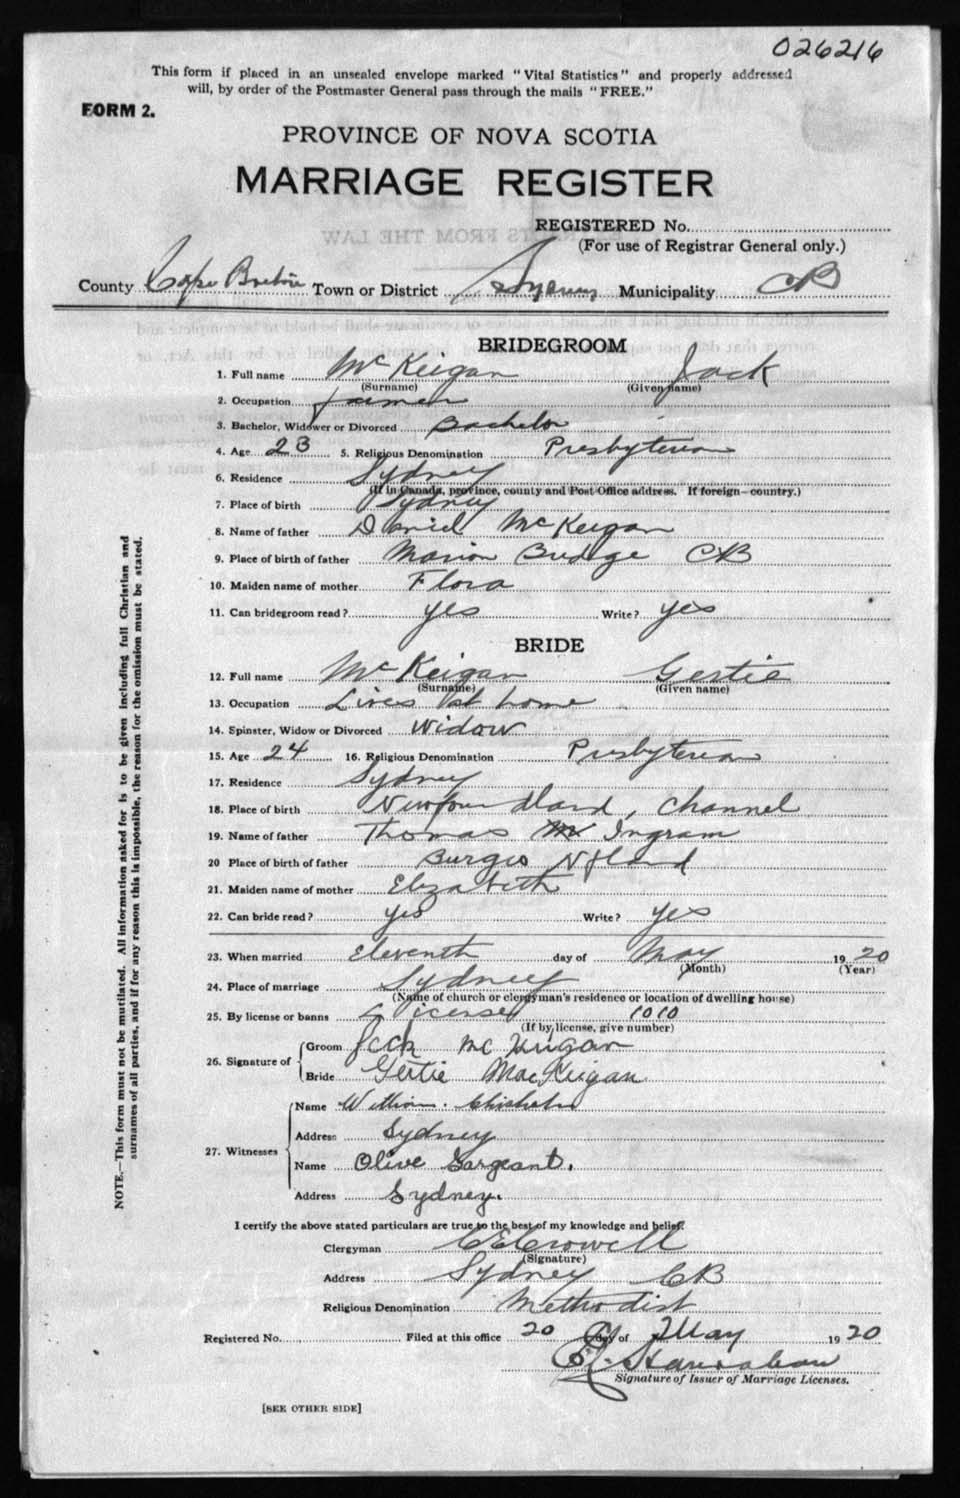 026216
This form if placed in an unsealed envelope marked "Vital Statistics" and properly addressed
will, by order of the Postmaster General pass through the mails "FREE."
FORM 2.
PROVINCE OF NOVA SCOTIA
MARRIAGE REGISTER
REGISTERED No.
(For use of Registrar General only.)
County Cape Breton Town or District Sydney Municipality CB
BRIDEGROOM
1. Full name McKeigan Jack
(Surname) (Given name)
2. Occupation farmer
3. Bachelor, Widower or Divorced Bachelor
4. Age 23 5. Religious Denomination Presbyterian
6. Residence Sydney
(If in Canada, province, county and Post Office address. If foreign—country.)
7. Place of birth Sydney
8. Name of father Daniel McKeigan
9. Place of birth of father Marion Bridge CB
10. Maiden name of mother Flora
11. Can bridegroom read? yes Write? yes
BRIDE
12. Full name McKeigan Gertie
(Surname) (Given name)
13. Occupation Lives at home
14. Spinster, Widow or Divorced Widow
15. Age 24 16. Religious Denomination Presbyterian
17. Residence Sydney
18. Place of birth Newfoundland, Channel
19. Name of father Thomas Ingram
20 Place of birth of father Burgeo Nfland
21. Maiden name of mother Elizabeth
22. Can bride read? yes Write? yes
23. When married Eleventh day of May 1920
(Month) (Year)
24. Place of marriage Sydney
(Name of church or clergyman's residence or location of dwelling house)
25. By license or banns License 1010
(If by license, give number)
26. Signature of Groom Jack McKeigan
Bride Gertie MacKeigan
27. Witnesses Name William Chisholm
Address Sydney
Name Olive Sargeant.
Address Sydney.
I certify the above stated particulars are true to the best of my knowledge and belief.
Clergyman CECrowell
(Signature)
Address Sydney CB
Religious Denomination Methodist
Registered No. Filed at this office 20 day of May 1920
Signature of Issuer of Marriage Licenses.
[SEE OTHER SIDE]
NOTE.—This form must not be mutilated. All information asked for is to be given including full Christian and
surnames of all parties, and if for any reason this is impossible, the reason for the omission must be stated.